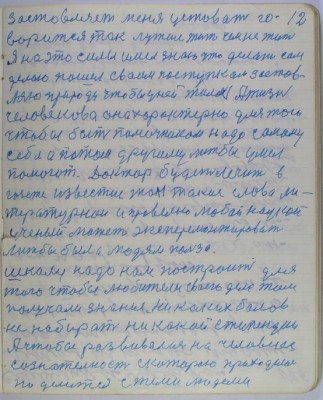 заставляет меня уставать го- 12
ворится так лучше тот чем не тот
Я на это силы имел знаю это делаю сам
делаю пошел своим поступкам застав-
ляю природу чтобы у ней жил А жизнь
человекова она характерно для того
чтобы быть помочником надо самому
себе а потом другому чтобы умел
помогат. Доктор будет лечит в
газете известие такие слова ли-
тературном и правельно любой научной
ученый может эксперементироват
лижбы была людям полза.
школу надо нам построит для
того чтобы любители своего дела там
получали знания. Ни каких балов
не набират ни какой стипендии
А чтобы развивалися на человеке
сознательност с которою приходится
по делится с теми людеми